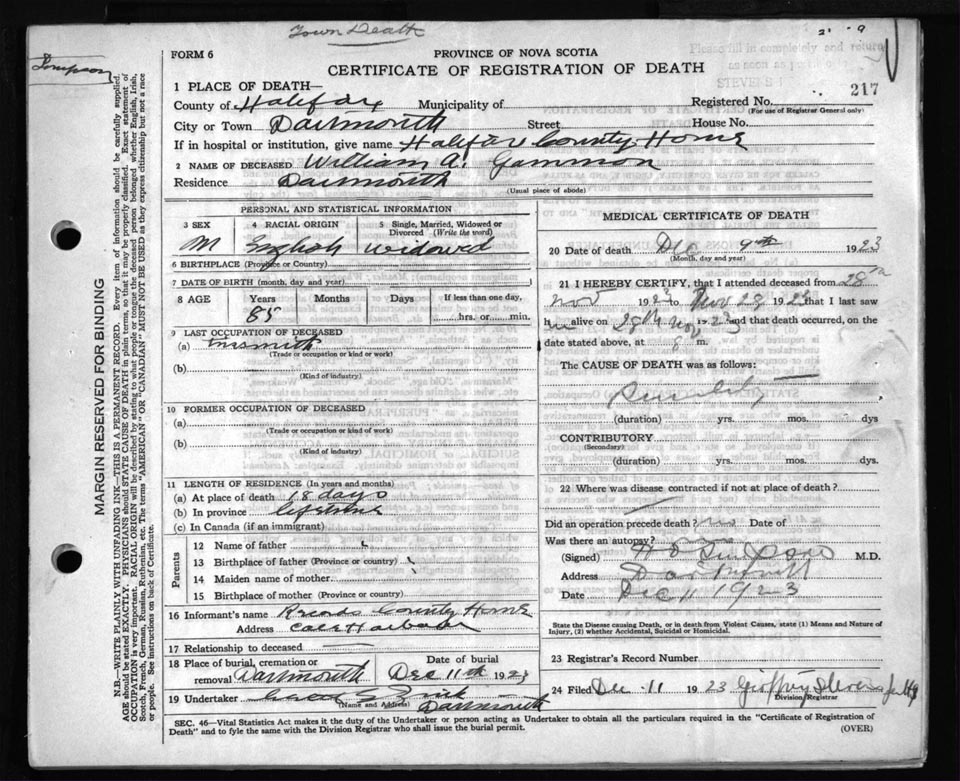 Town Death
FORM 6
PROVINCE OF NOVA SCOTIA
Please fill in completely and return
as soon as
CERTIFICATE OF REGISTRATION OF DEATH
Simpson
1 PLACE OF DEATH—
217
County of Halifax Municipality of Registered No.
(For use of Registrar General only)
City or Town Dartmouth Street House No.
If in hospital or institution, give name Halifax County Home
2 NAME OF DECEASED William A. Gammon
Residence Dartmouth
(Usual place of abode)
PERSONAL AND STATISTICAL INFORMATION
3 SEX 4 RACIAL ORIGIN 5 Single, Married, Widowed or Divorced (Write the word)
M English Widowed
6 BIRTHPLACE (Province or Country)
7 DATE OF BIRTH (month, day and year)
8 AGE Years Months Days If less than one day,
85 hrs. or min.
9 LAST OCCUPATION OF DECEASED
(a) Tinsmith
(Trade or occupation or kind or work)
(b)
(Kind of industry)
10 FORMER OCCUPATION OF DECEASED
(a)
(Trade or occupation or kind of work)
(b)
(Kind of industry)
11 LENGTH OF RESIDENCE (In years and months)
(a) At place of death 18 days
(b) In province lifetime
(c) In Canada (if an immigrant)
Parents
12 Name of father
13 Birthplace of father (Province or country)
14 Maiden name of mother
15 Birthplace of mother (Province or country)
16 Informant's name Records County Home
Address Cole Harbour
17 Relationship to deceased
18 Place of burial, cremation or removal Dartmouth
Date of burial Dec 11th 1923
19 Undertaker
(Name and Address) Dartmouth
MEDICAL CERTIFICATE OF DEATH
20 Date of death Dec 9th 1923
(Month, day and year)
21 I HEREBY CERTIFY, that I attended deceased from 28th
Nov 1923 to Nov 28 1923 that I last saw
him alive on 28th Nov 1923 and that death occurred, on the
date stated above, at 8 m.
The CAUSE OF DEATH was as follows:
Senility
(duration) yrs. mos. dys
CONTRIBUTORY
(Secondary)
(duration) yrs. mos. dys.
22 Where was disease contracted if not at place of death?
Did an operation precede death? no Date of
Was there an autopsy? no
(Signed) H O Simpson M.D.
Address Dartmouth
Date Dec 11 1923
State the Disease causing Death, or in death from Violent Causes, state (1) Means and Nature of
Injury, (2) whether Accidental, Suicidal or Homicidal.
23 Registrar's Record Number
24 Filed Dec 11 1923 Geoffrey Stevens
Division Registrar
SEC. 46—Vital Statistics Act makes it the duty of the Undertaker or person acting as Undertaker to obtain all the particulars required in the "Certificate of Registration of
Death" and to fyle the same with the Division Registrar who shall issue the burial permit.
(OVER)
MARGIN RESERVED FOR BINDING
N.B.—WRITE PLAINLY WITH UNFADING INK—THIS IS A PERMANENT RECORD. Every item of information should be carefully supplied.
AGE should be stated EXACTLY. PHYSICIANS should STATE CAUSE OF DEATH in plain terms, so that it may be properly classified. Exact statement of
OCCUPATION is very important. RACIAL ORIGIN will be described by stating to what people or tongue the deceased person belonged, whether English, Irish,
Scotch, French, German, Russian, Ruthenian, etc. The terms "AMERICAN" OR "CANADIAN" MUST NOT BE USED as they express citizenship but not a race
or people. See instructions on back of Certificate.